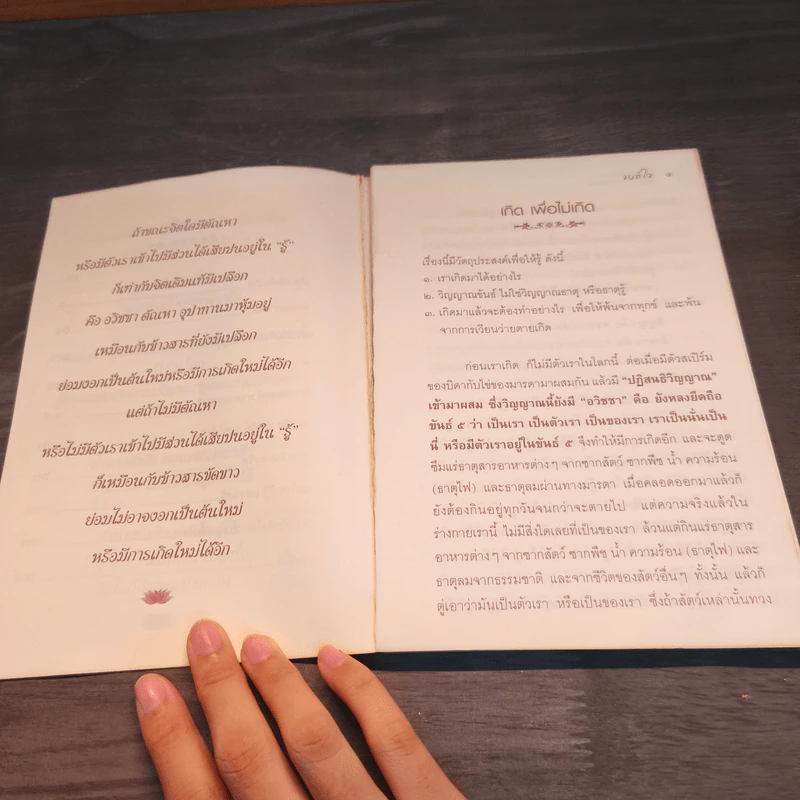 ถ้าขณะจิตใดมีตัณหา
หรือมีตัวเราเข้าไปมีส่วนได้เสียปนอยู่ใน “รู้”
ก็เท่ากับจิตเดิมแท้มีเปลือก
คือ อวิชชา ตัณหา อุปาทานมาหุ้มอยู่
เหมือนกับข้าวสารที่ยังมีเปลือก
ย่อมงอกเป็นต้นใหม่หรือมีการเกิดใหม่ได้อีก
แต่ถ้าไม่มีตัณหา
หรือไม่มีตัวเราเข้าไปมีส่วนได้เสียปนอยู่ใน “รู้”
ก็เหมือนกับข้าวสารขัดขาว
ย่อมไม่อาจงอกเป็นต้นใหม่
หรือมีการเกิดใหม่ได้อีก
๑
เกิด เพื่อไม่เกิด
เรื่องนี้มีวัตถุประสงค์เพื่อให้รู้ ดังนี้
๑. เราเกิดมาได้อย่างไร
๒. วิญญาณขันธ์ ไม่ใช่วิญญาณธาตุ หรือธาตุรู้
๓. เกิดมาแล้วจะต้องทำอย่างไร เพื่อให้พ้นจากทุกข์ และพ้น
จากการเวียนว่ายตายเกิด
ก่อนเราเกิด ก็ไม่มีตัวเราในโลกนี้ ต่อเมื่อมีตัวสเปิร์ม
ของบิดากับไข่ของมารดามาผสมกัน แล้วมี “ปฏิสนธิวิญญาณ”
เข้ามาผสม ซึ่งวิญญาณนี้ยังมี “อวิชชา” คือ ยังหลงยึดถือ
ขันธ์ ๕ ว่า เป็นเรา เป็นตัวเรา เป็นของเรา เราเป็นนั่นเป็น
นี่ หรือมีตัวเราอยู่ในขันธ์ ๕ จึงทำให้มีการเกิดอีก และจะดูด
ซึมแร่ธาตุสารอาหารต่างๆ จากซากสัตว์ ซากพืช น้ำ ความร้อน
(ธาตุไฟ) และธาตุลมผ่านทางมารดา เมื่อคลอดออกมาแล้วก็
ยังต้องกินอยู่ทุกวันจนกว่าจะตายไป แต่ความจริงแล้วใน
ร่างกายเรานี้ ไม่มีสิ่งใดเลยที่เป็นของเรา ล้วนแต่กินแร่ธาตุสาร
อาหารต่างๆ จากซากสัตว์ ซากพืช น้ำ ความร้อน (ธาตุไฟ) และ
ธาตุลมจากธรรมชาติ และจากชีวิตของสัตว์อื่นๆ ทั้งนั้น แล้วก็
ตู่เอาว่ามันเป็นตัวเรา หรือเป็นของเรา ซึ่งถ้าสัตว์เหล่านั้นทวง